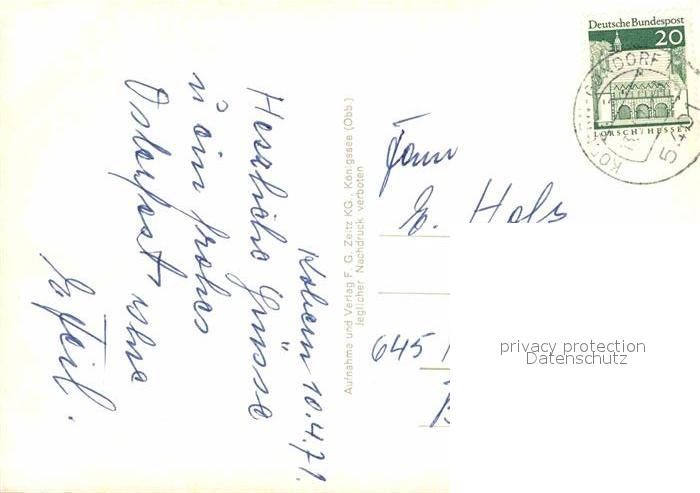 Kobern 10.4.71.
Herzliche Grüsse
u ein frohes
Osterfest
Aufnahme und Verlag F. G. Zeitz KG., Königssee (Obb.)
Jeglicher Nachdruck verboten
Deutsche Bundespost
20
LORSCH/HESSEN
5401
E. Hols
645
privacy protection
Datenschutz